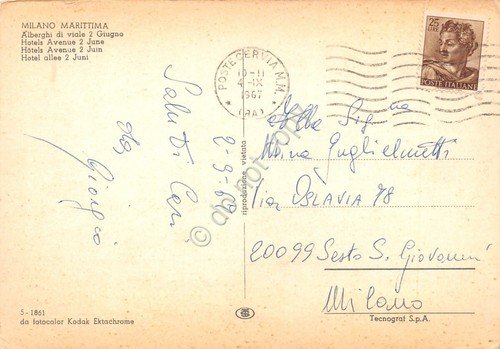 MILANO MARITTIMA
Alberghi di viale 2 Giugno
Hotels Avenue 2 June
Hôtels Avenue 2 Juin
Hotel allee 2 Juni
Saluti Cari
da
Giorgio
2.9.67
POSTE CERVIA M.M.
10-11
4 IX
1967
(RA)
25
LIRE
POSTE ITALIANE
Alla Sig.na
Mina Guglielmetti
Via OSLAVIA 78
20099 Sesto S. Giovanni
Milano
riproduzione vietata
5-1861
da fotocolor Kodak Ektachrome
Tecnograf S.p.A.